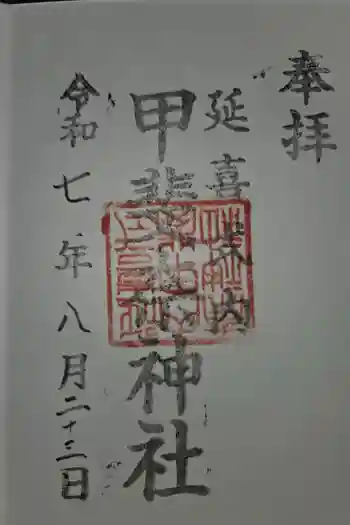 奉拝
延喜式内
甲斐 神社
令和七年八月二十三日